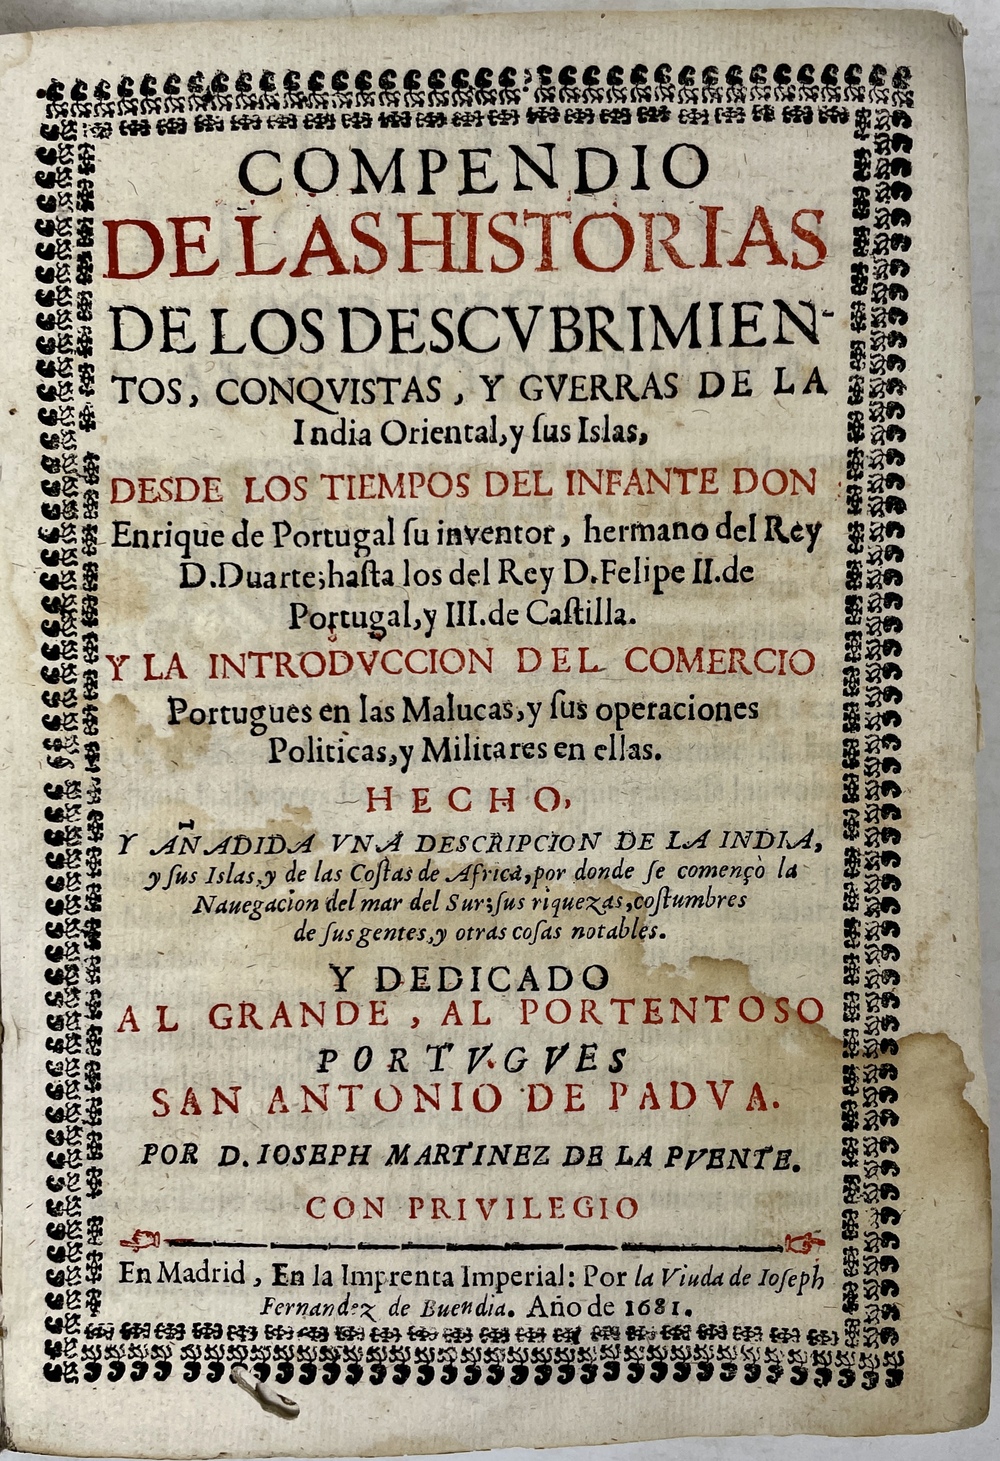 COMPENDIO
DE LAS HISTORIAS
DE LOS DESCVBRIMIEN-
TOS, CONQVISTAS, Y GVERRAS DE LA
India Oriental, y ſus Islas,
DESDE LOS TIEMPOS DEL INFANTE DON
Enrique de Portugal ſu inventor, hermano del Rey
D. Duarte; haſta los del Rey D. Felipe II. de
Portugal, y III. de Caſtilla.
Y LA INTRODVCCION DEL COMERCIO
Portugues en las Malucas, y ſus operaciones
Politicas, y Militares en ellas.
HECHO,
Y AÑADIDA VNA DESCRIPCION DE LA INDIA,
y ſus Islas, y de las Coſtas de Africa, por donde ſe començò la
Nauegacion del mar del Sur; ſus riquezas, coſtumbres
de ſus gentes, y otras coſas notables.
Y DEDICADO
AL GRANDE, AL PORTENTOSO
PORTVGVES
SAN ANTONIO DE PADVA.
POR D. IOSEPH MARTINEZ DE LA PVENTE.
CON PRIVILEGIO
En Madrid, En la Imprenta Imperial: Por la Viuda de Ioſeph
Fernandez de Buendia. Año de 1681.